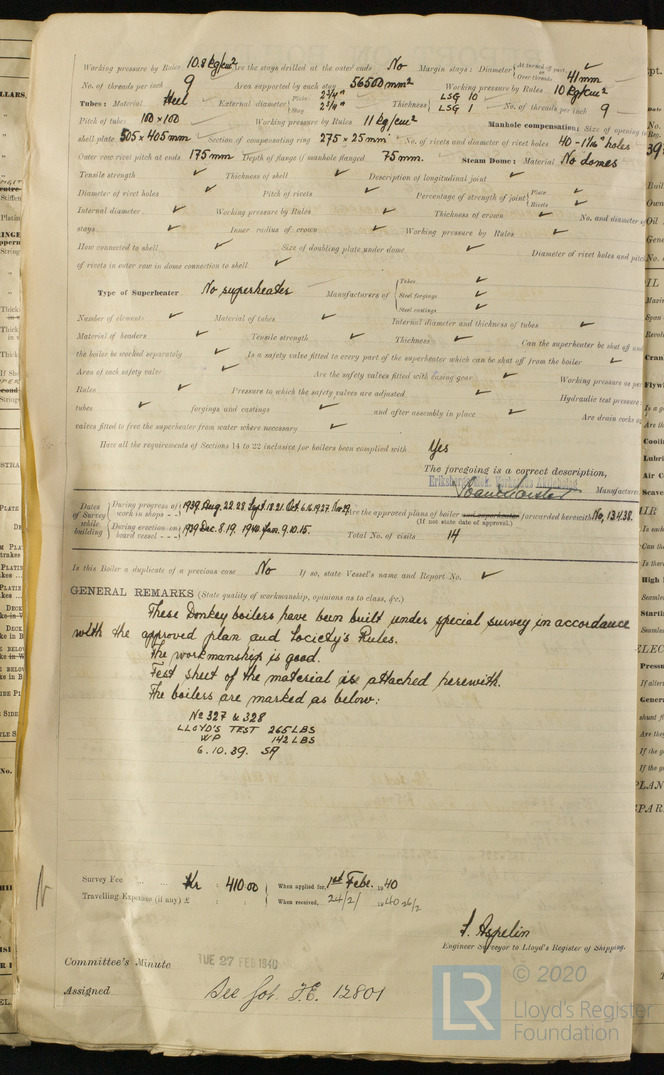 Working pressure by Rules 10.8 kg/cm² Are the stays drilled at the outer ends No Margin stays: Diameter { At turned off part, ✓ or Over threads 41 mm
No. of threads per inch 9 Area supported by each stay 56500 mm² Working pressure by Rules 10 kg/cm²
Tubes: Material Steel External diameter { Plain 2 3/4" Stay 2 3/4" Thickness { LSG 10 LSG 1 No. of threads per inch 9
Pitch of tubes 100 x 100 Working pressure by Rules 11 kg/cm² Manhole compensation: Size of opening in
shell plate 505 x 405 mm Section of compensating ring 275 x 25 mm No. of rivets and diameter of rivet holes 40 - 1 1/16" holes
Outer row rivet pitch at ends 175 mm Depth of flange if manhole flanged 75 mm. Steam Dome: Material No domes
Tensile strength ✓ Thickness of shell ✓ Description of longitudinal joint ✓
Diameter of rivet holes ✓ Pitch of rivets ✓ Percentage of strength of joint { Plate ✓ Rivets ✓
Internal diameter ✓ Working pressure by Rules ✓ Thickness of crown ✓ No. and diameter of
stays ✓ Inner radius of crown ✓ Working pressure by Rules ✓
How connected to shell ✓ Size of doubling plate under dome ✓ Diameter of rivet holes and pitch
of rivets in outer row in dome connection to shell ✓
Type of Superheater No superheater Manufacturers of { Tubes ✓ Steel forgings ✓ Steel castings ✓
Number of elements ✓ Material of tubes ✓ Internal diameter and thickness of tubes ✓
Material of headers ✓ Tensile strength ✓ Thickness ✓ Can the superheater be shut off and
the boiler be worked separately ✓ Is a safety valve fitted to every part of the superheater which can be shut off from the boiler ✓
Area of each safety valve ✓ Are the safety valves fitted with easing gear ✓ Working pressure as per
Rules ✓ Pressure to which the safety valves are adjusted ✓ Hydraulic test pressure:
tubes ✓ forgings and castings ✓ and after assembly in place ✓ Are drain cocks or
valves fitted to free the superheater from water where necessary ✓
Have all the requirements of Sections 14 to 22 inclusive for boilers been complied with Yes
The foregoing is a correct description,
Manufacturer
Dates of Survey while building { During progress of work in shops - - 1939. Aug. 22. 28 Sept. 12. 21. Oct. 6. 16. 19 27. Nov. 29 Are the approved plans of boiler and superheater forwarded herewith No, 13438.
(If not state date of approval.)
During erection on board vessel - - - 1939 Dec. 8. 19. 1940 Jan. 9. 10. 15. Total No. of visits 14
Is this Boiler a duplicate of a previous case No If so, state Vessel's name and Report No. ✓
GENERAL REMARKS (State quality of workmanship, opinions as to class, &c.)
These Donkey boilers have been built under special survey in accordance
with the approved plan and Society's Rules.
The workmanship is good.
Test sheet of the material is attached herewith.
The boilers are marked as below:
No 327 & 328
LLOYD'S TEST 265 LBS
WP 142 LBS
6.10.39. SA
Survey Fee ... ... Kr : 410.00 When applied for, 1st Febr. 1940
Travelling Expenses (if any) £ : : When received, 24/2/ 1940 26/2
S. Aspelin
Engineer Surveyor to Lloyd's Register of Shipping.
Committee's Minute TUE 27 FEB 1940
Assigned See Got. F.E. 12801
LR © 2020
Lloyd's Register
Foundation